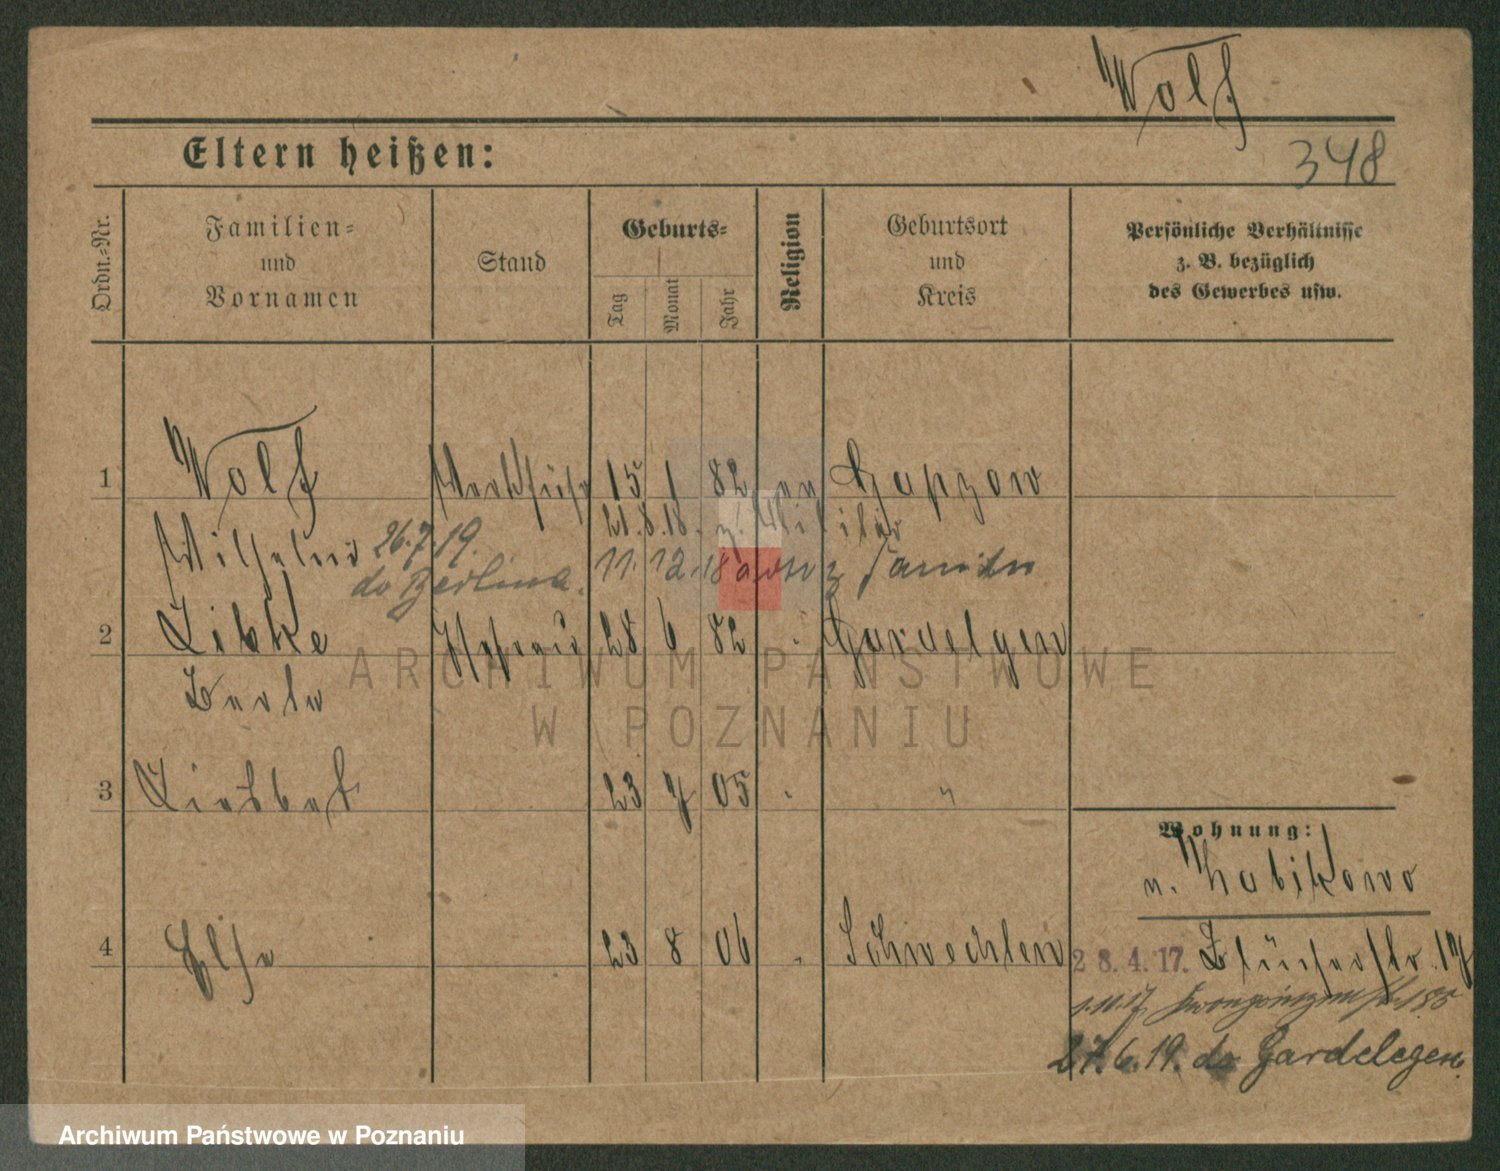 Wolf
Eltern heißen:
348
Ordn.-Nr.
Familien-
und
Vornamen
Stand
Geburts-
Tag
Monat
Jahr
Religion
Geburtsort
und
Kreis
Persönliche Verhältnisse
z. B. bezüglich
des Gewerbes usw.
1 Wolf 15 1 82 ev
21.8.18. z. Militär
Wilhelm 26.7.19.
do Berlina. 11.12.18 von z Familie
2 Ehefrau 28 6 82 Gardelegen
3 Liesbet 23 7 05 "
Wohnung:
n. Zabikowo
4 Else 23 8 06 Schwechten
28.4.17. Blücherstr. 17
1.10.17 185
27.6.19. do Gardelegen.
ARCHIWUM PAŃSTWOWE
W POZNANIU
Archiwum Państwowe w Poznaniu